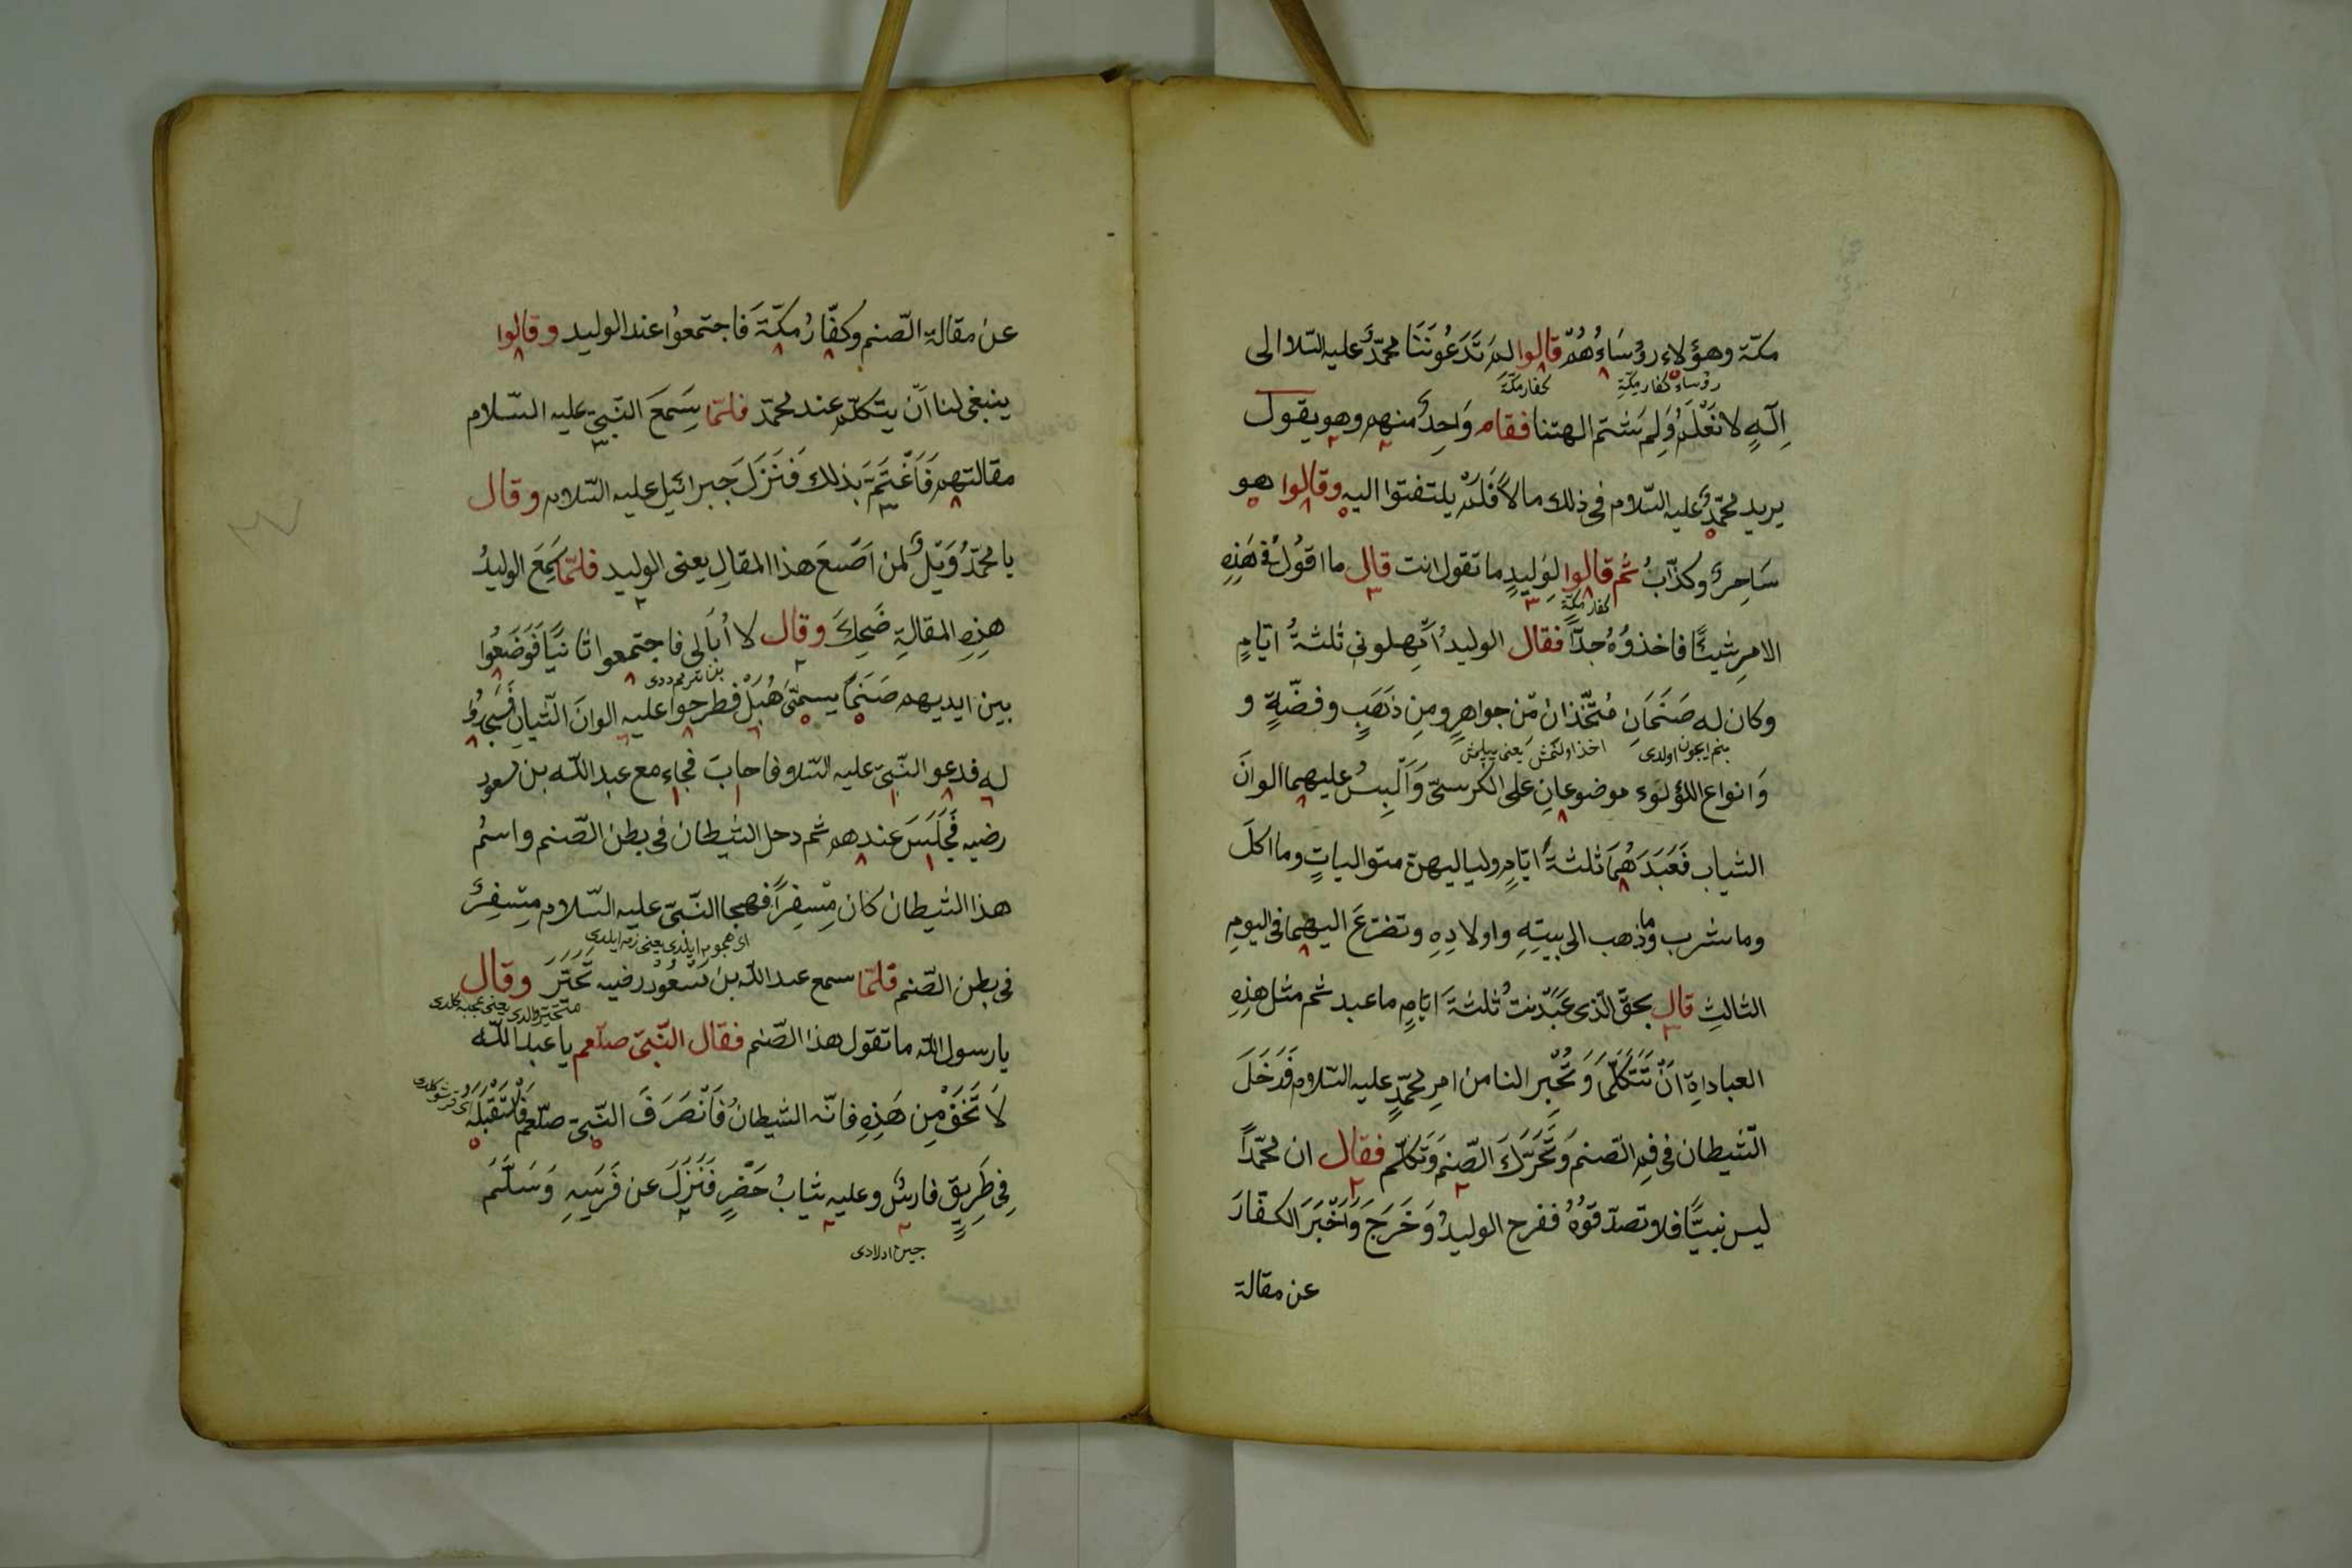 مكّة وهؤلاء رؤساءُهُمْ قالوا لِمَ تَدْعُونَنَا محمّدٌ عليه السّلام الى
رؤساء كفار مكّة
كفار مكّة
اِلٰهٍ لا نَعْلَمُ وَلِمَ شتم الهتنا فقام وَاحِدٌ منهم وهو يقول
يريد محمّدٌ عليه السّلام فى ذلك مالاً فَلَمْ يلتفتوا اليه وقالوا هو
سَاحِرٌ وكذّابٌ ثم قالوا لِوَليدٍ ما تقول انت قال ما اقولُ فى هَذِهِ
كفار مكّة
الامرِ شيئًا فاخذوُهُ جدّاً فقال الوليدُ اَمْهِلونى ثلثةُ ايّامٍ
وكان له صَنَمَانِ مُتّخذان مّن جواهرٍ ومِن ذَهَبٍ وفضّةٍ و
اولدى
اخذ اولنمش يعنى يپلمش
وَانواع اللؤلؤء موضوعانِ على الكرستّى وَاَلْبِسُ عليهما الوانَ
الثياب فَعَبَدَ هُمَا ثلثةُ ايّامٍ ولياليهن متوالياتٍ وما اكلَ
وما شرب وما ذهب الى بيتِهِ واولادِهِ وتضرّعَ اليهما فى اليومِ
الثالثِ قال بحقّ الّذى عَبَدْتُ ثلثةَ ايّامٍ ما عبد ثم مثل هذِهِ
العباداةِ اَنْ تَتَكَلَّمَا وَتُخْبِر النا من امرِ محمّدٍ عليه السّلام فَدَخَلَ
الشّيطان فى فِم الصّنم وَتَحَرَّكَ الصّنم وَتَكَلَّم فقال ان محمّداً
ليس نبيًّا فلا تصدّقوُهُ ففرح الوليدُ وَخَرَجَ وَاَخْبَرَ الكفّارَ
عن مقالة
عن مقالة الصّنم وكفّارُ مكّةَ فاجتمعوُا عند الوليد وقالوا
ينبغى لنا اَنْ يتكلّم عند محمّد فلمّا سَمِعَ النّبىّ عليه السّلام
مقالتهم فَاَغْتَمَّ بذلك فَنَزَلَ جبرائيل عليه السّلام وقال
يا محمّدُ وَيْلٌ لمن اَصْنعَ هذا المقالِ يعنى الوليد فلمّا سَمِعَ الوليدُ
هذِهِ المقالةِ ضَحِكَ وقال لا اُبَالى فاجتمعوا ثانيًا فَوَضَعُوا
بين ايديهم صَنَمًا يسمّىَ هُبُلْ فطرحوا عليه الوانَ الثّياب فَسَجَدُوُ
له فدعو النّبىّ عليه السّلام فاجابَ فجاء مع عبد اللّه بن مسعود
رضيه فَجَلَسَ عندهم ثم دخل الشيطان فى بطن الصّنم واسمُ
هذا الشيطان كان مِسْفِراً فهجا النّبىّ عليه السّلام مِسْفِرٌ
اى هجوم ايلدى يعنى
فى بطن الصّنم فلمّا سمع عبد اللّه بن مَسْعُوُد رضيه تَحَيَّرَ وقال
متحيّر اولدى يعنى عجبه كلدى
يا رسول اللّه ما تقول هذا الصّنم فقال النّبىّ صلّعم يا عبد اللّه
لَا تَخَفْ مِن هَذِهِ فانّه الشيطانُ فَاَنْصَرَفَ النّبىّ صلّعم فَاسْتَقْبَلَهُ
فِى طَرِيقٍ فارسٌ وعليه ثيابُ خَضْرٍ فَنَزَلَ عن فَرَسِهِ وَسَلَّمَ